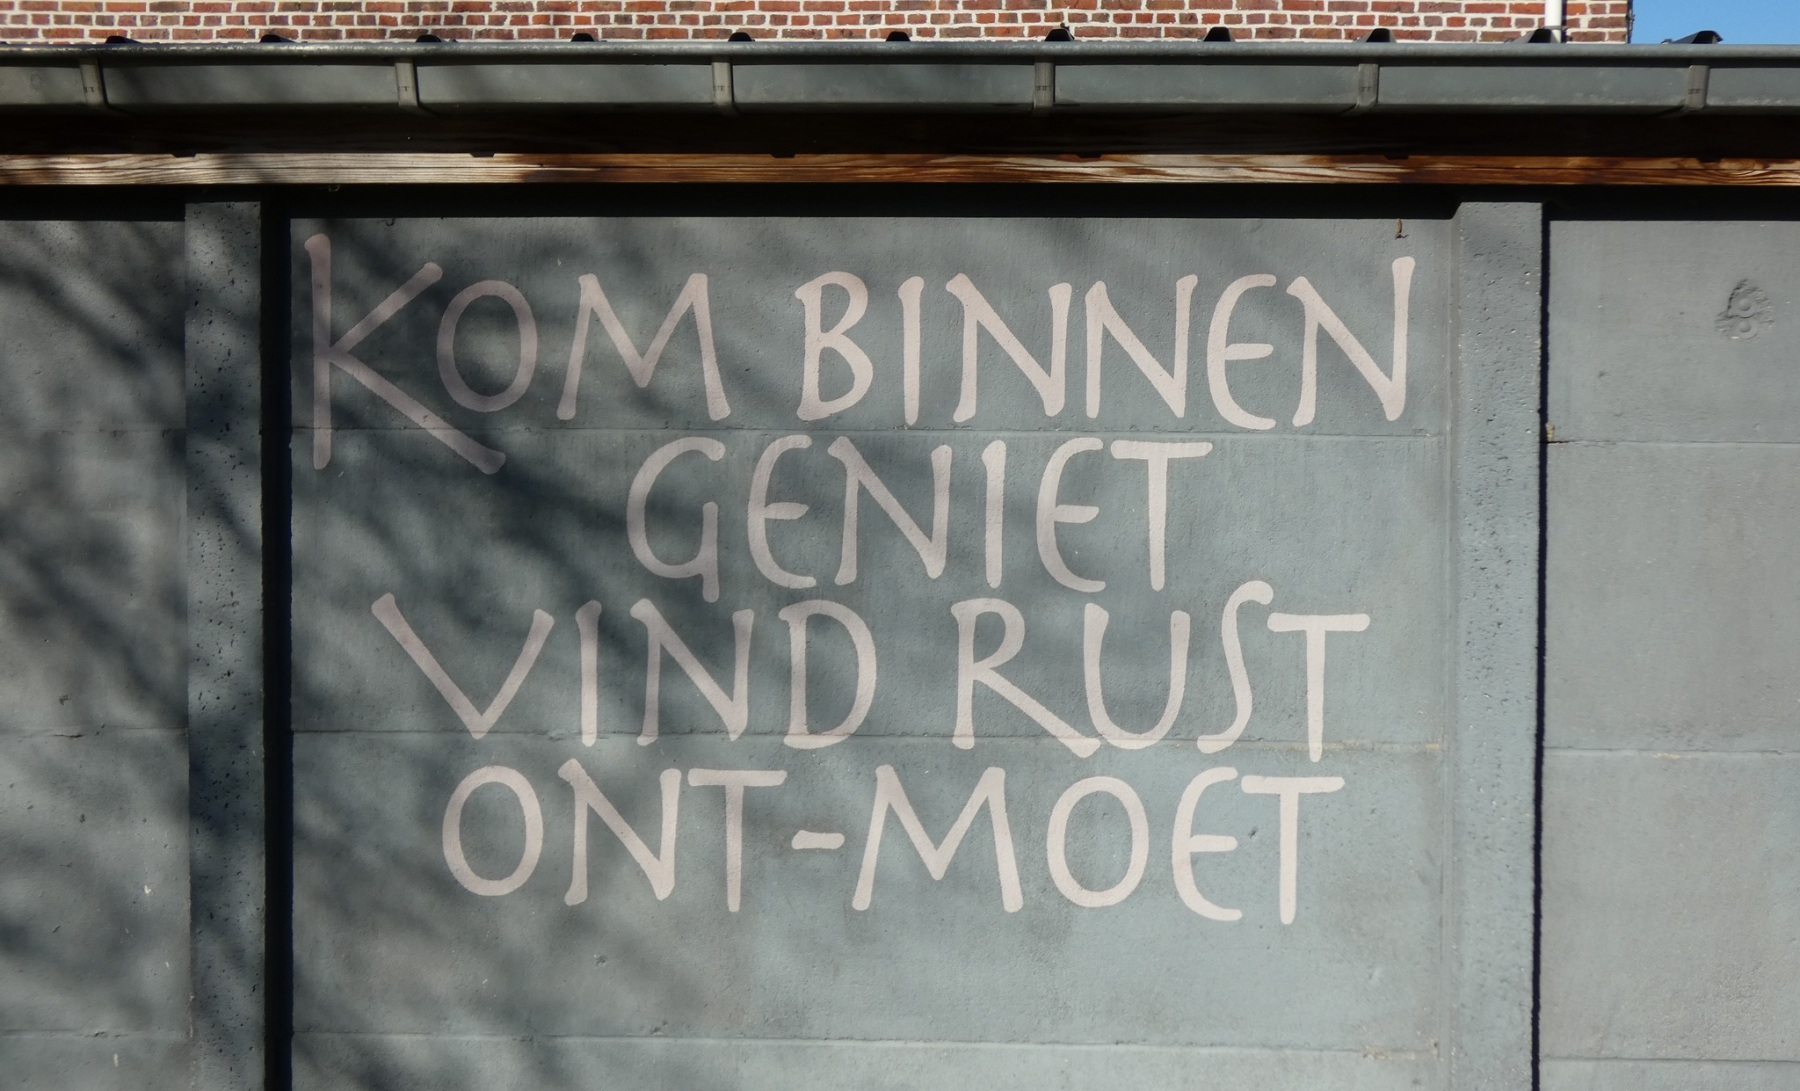 KOM BINNEN
GENIET
VIND RUST
ONT-MOET